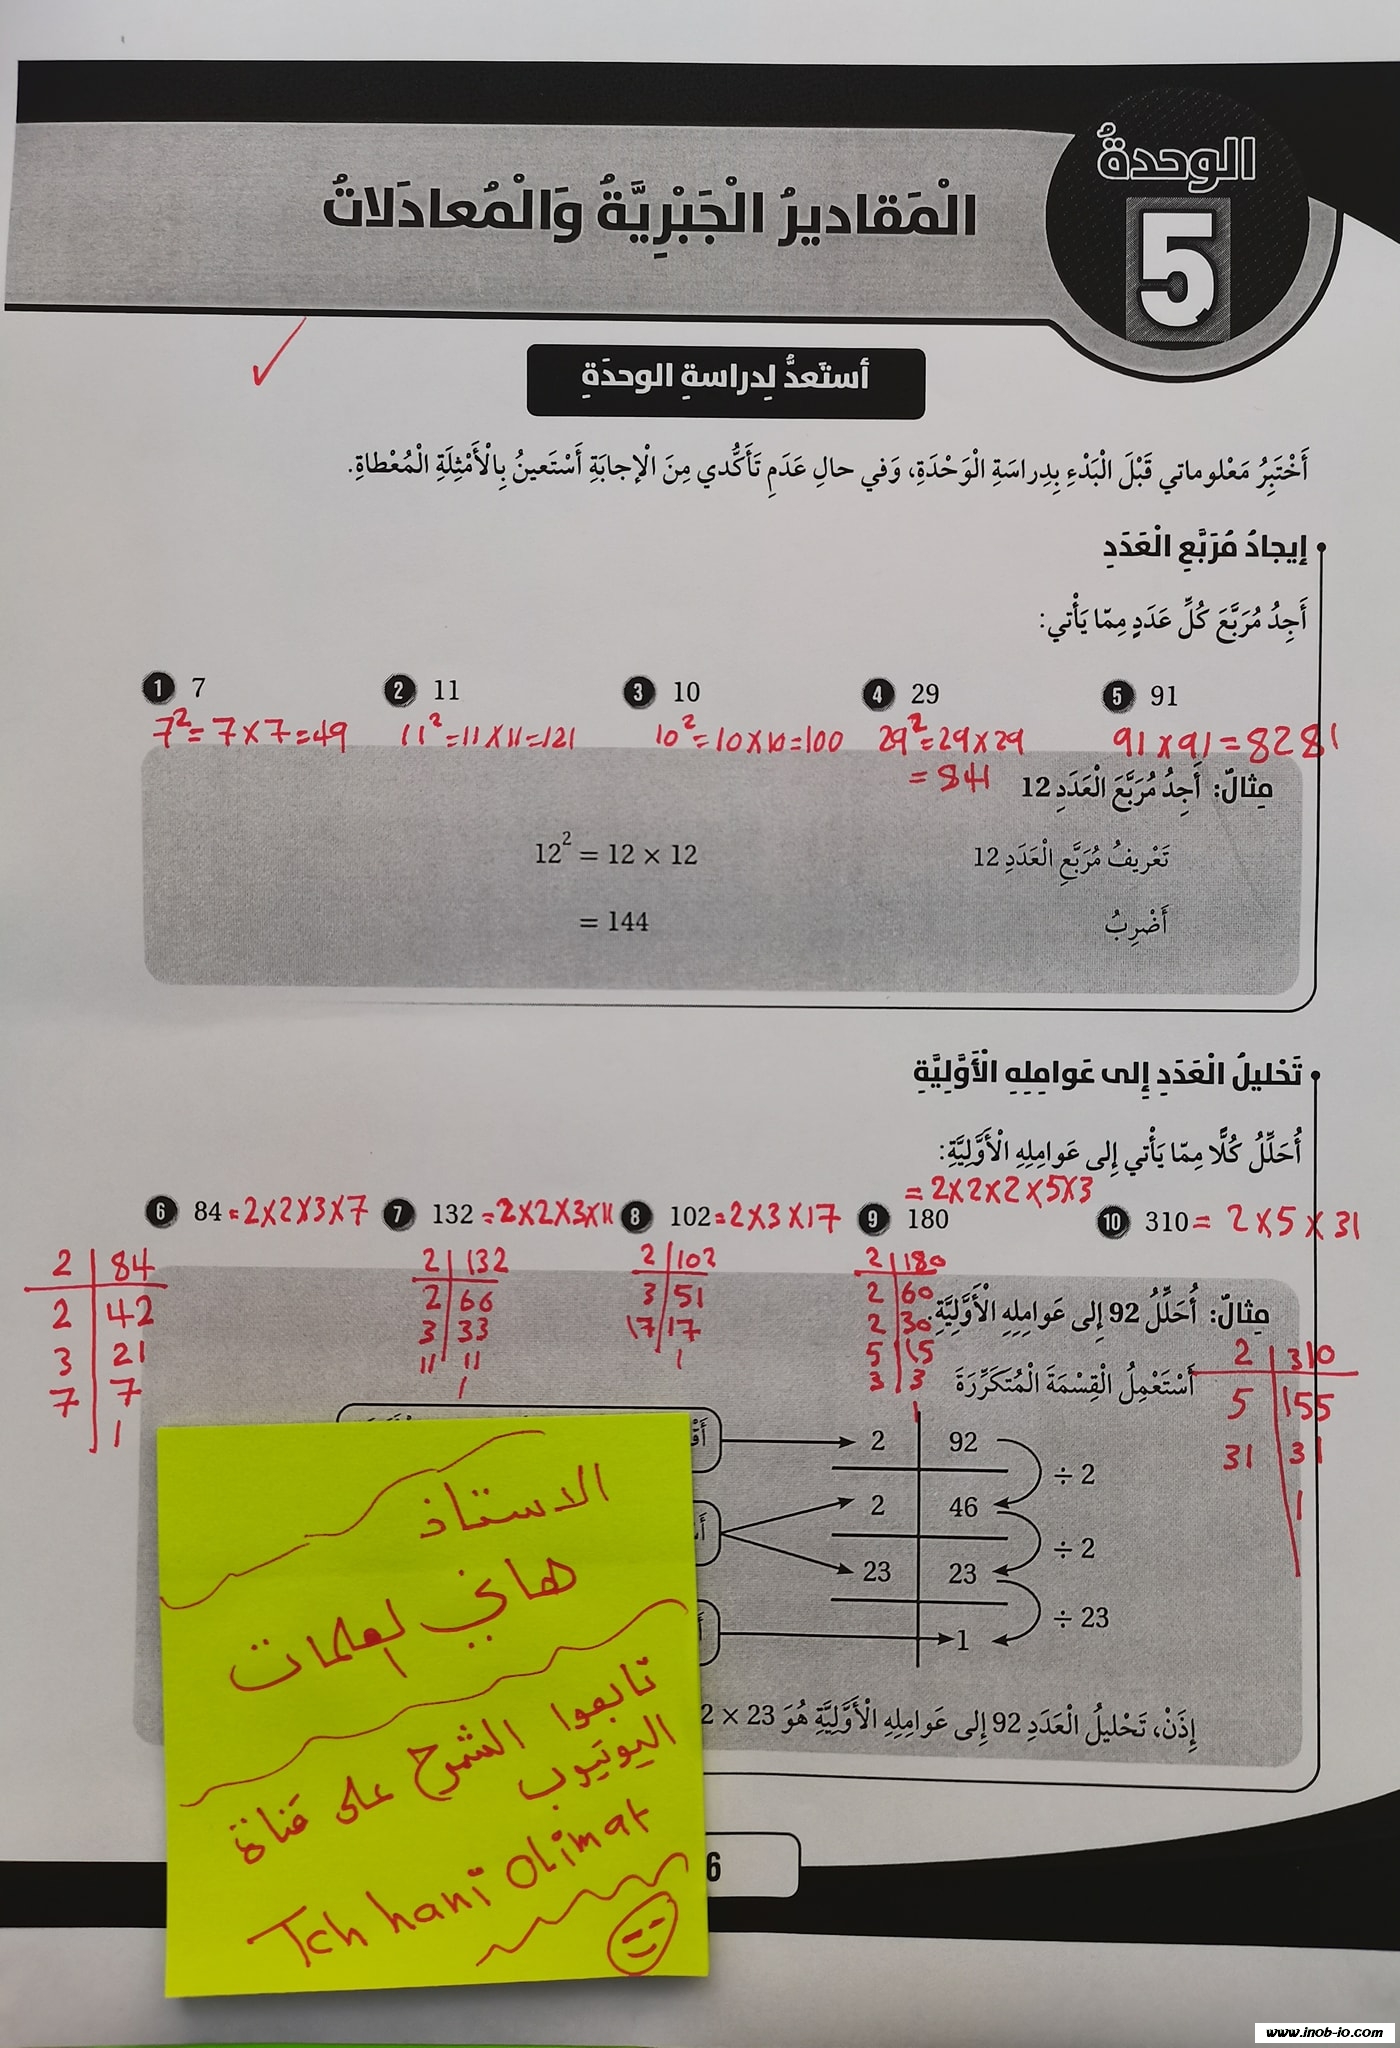 الوحدةُ
5
الْمَقاديرُ الْجَبْرِيَّةُ وَالْمُعادَلاتُ
أستَعدُّ لِدراسةِ الوحدَةِ
أَخْتَبِرُ مَعْلوماتي قَبْلَ الْبَدْءِ بِدِراسَةِ الْوَحْدَةِ، وَفي حالِ عَدَمِ تَأَكُّدي مِنَ الْإجابَةِ أَسْتَعينُ بِالْأَمْثِلَةِ الْمُعْطاةِ.
إيجادُ مُرَبَّعِ الْعَدَدِ
أَجِدُ مُرَبَّعَ كُلِّ عَدَدٍ مِمّا يَأْتي:
1 7 2 11 3 10 4 29 5 91
7²=7×7=49 11²=11×11=121 10²=10×10=100 29²=29×29 91×91=8281
=841
مِثالٌ: أَجِدُ مُرَبَّعَ الْعَدَدِ 12
12² = 12 × 12 تَعْريفُ مُرَبَّعِ الْعَدَدِ 12
= 144 أَضْرِبُ
تَحْليلُ الْعَدَدِ إِلى عَوامِلِهِ الْأَوَّلِيَّةِ
أُحَلِّلُ كُلًّا مِمّا يَأْتي إِلى عَوامِلِهِ الْأَوَّلِيَّةِ:
=2×2×2×5×3
6 84=2×2×3×7 7 132=2×2×3×11 8 102=2×3×17 9 180 10 310=2×5×31
2 84 2 132 2 102 2 180
2 42 2 66 3 51 2 60
3 21 3 33 17 17 2 30
7 7 11 11 1 5 15
1 1 3 3
1
مِثالٌ: أُحَلِّلُ 92 إِلى عَوامِلِهِ الْأَوَّلِيَّةِ.
2 310
5 155
31 31
1
أَسْتَعْمِلُ الْقِسْمَةَ الْمُتَكَرِّرَةَ
2 92 ÷ 2
2 46 ÷ 2
23 23 ÷ 23
1
إِذَنْ، تَحْليلُ الْعَدَدِ 92 إِلى عَوامِلِهِ الْأَوَّلِيَّةِ هُوَ 2 × 23
الاستاذ
هاني العلمات
تابعوا الشرح على قناة
اليوتيوب
Tch hani Olimat
6
www.inob-io.com